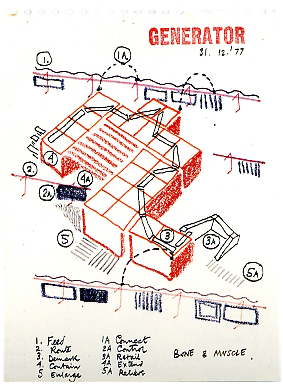 GENERATOR
21. 12. '77
1.
1A
4
2
4A
2A
3
3A
5
5A
1. Feed
2. Route
3.
4. Contain
5 Enlarge
1A Connect
2A Control
3A
4A Extend
5A Relieve
BONE & MUSCLE.